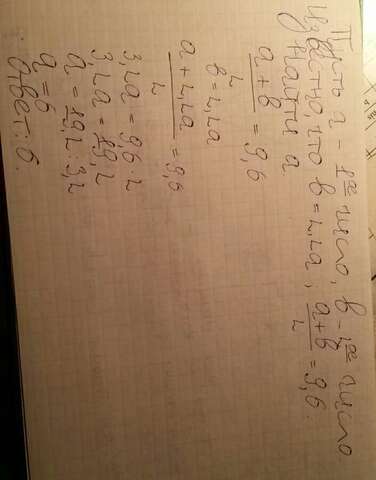 Пусть а - 1ое число, в - 2ое число
Известно, что в = 2,2а ; а+в/2 = 9,6.
Найти а.
а+в/2 = 9,6
в = 2,2а
а+2,2а/2 = 9,6
3,2а = 9,6 · 2
3,2а = 19,2
а = 19,2 : 3,2
а = 6
Ответ: 6.